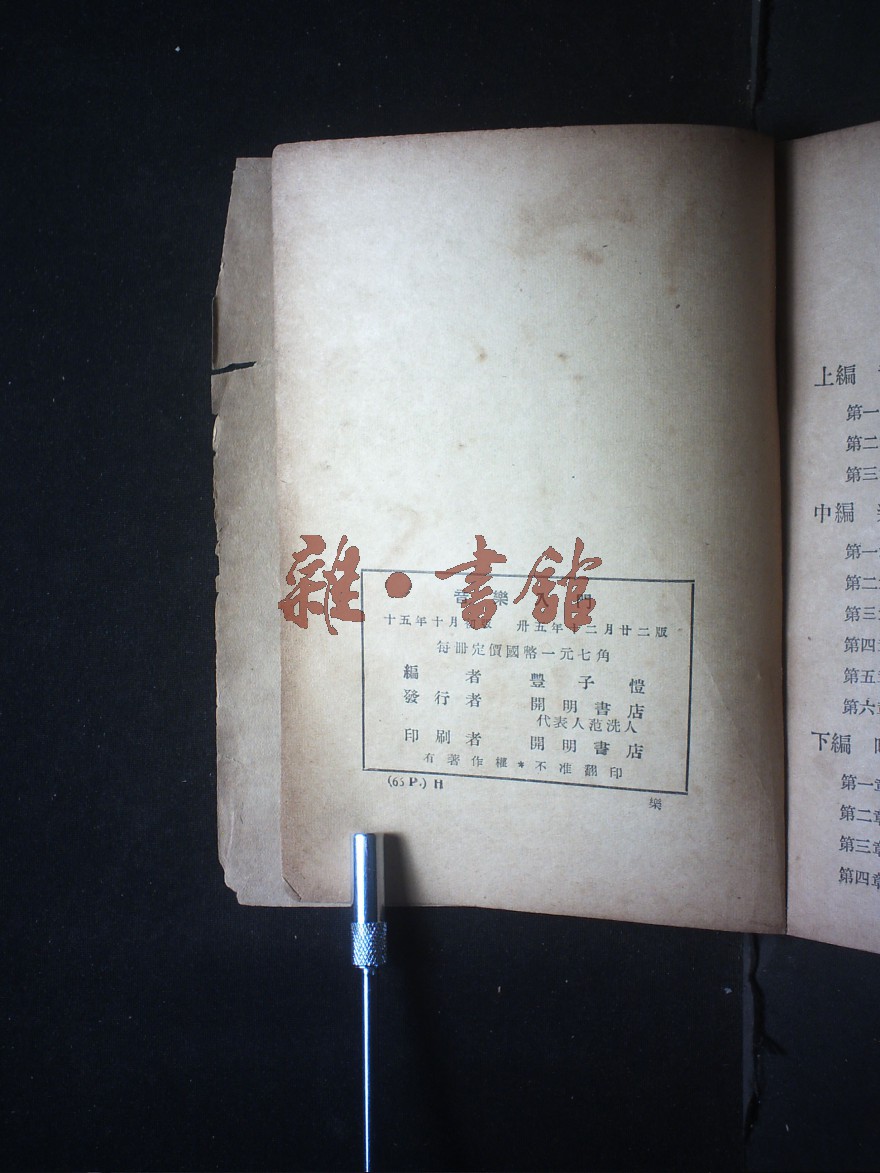 雜·書館
音樂入門
十五年十月初版　卅五年十二月廿二版
每冊定價國幣一元七角
編者　豐子愷
發行者　開明書店
代表人范洗人
印刷者　開明書店
有著作權＊不准翻印
(65 P.) H
樂
上編
第一
第二
第三
中編
第一
第二
第三
第四
第五
第六
下編
第一章
第二章
第三章
第四章